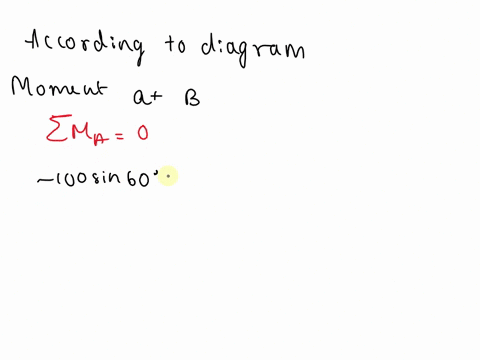 According to diagram
Moment at B
ΣM_A = 0
-100 sin 60°